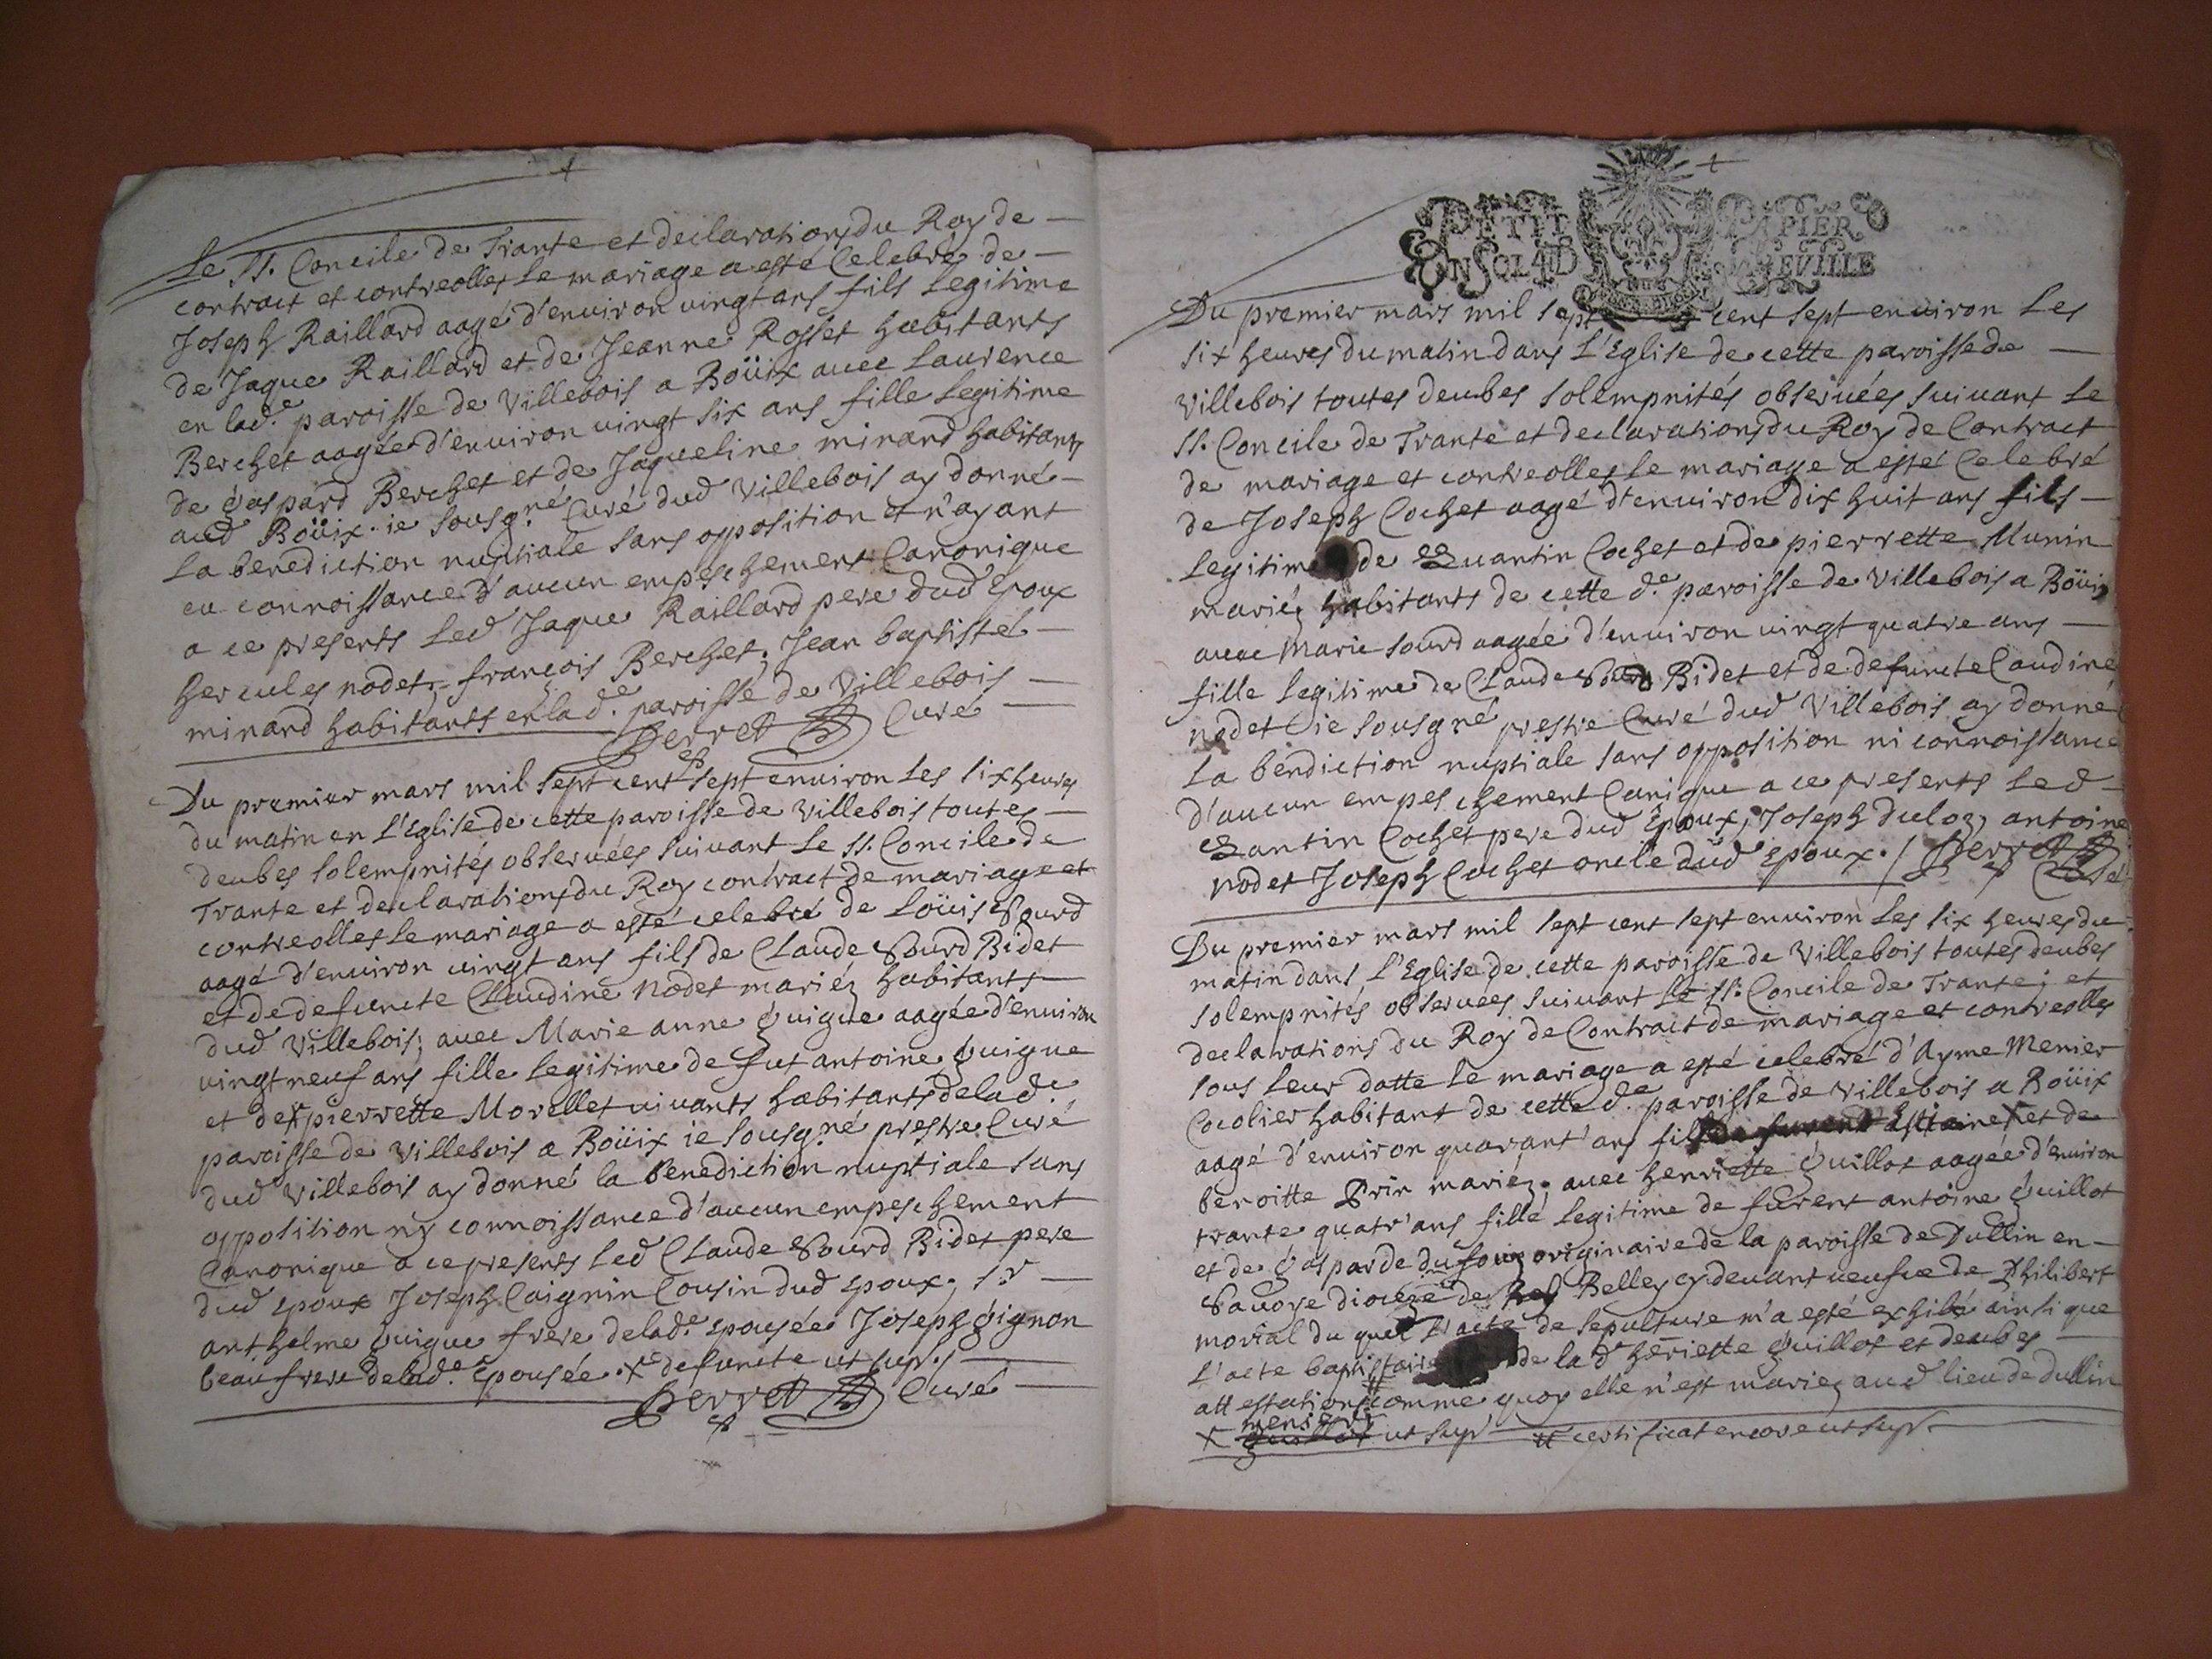 Le St. Concile de Trante et declarations du Roy de
contract et contreolles le mariage a esté Celebré de
Joseph Raillard aagé d'environ vingt ans fils Legitime
de Jaque Raillard et de Jeanne Rosset habitants
en lad.e paroisse de Villebois a Boüix avec Laurence
Berchet aagée d'environ vingt six ans fille Legitime
de gaspard Berchet et de Jaqueline minard habitants
aud Boüix. ie sousg.né Curé dud Villebois ay donné
La benediction nuptiale sans opposition et n'ayant
eu connoissance d'aucun empeschement Canonique
a ce presents Led Jaque Raillard pere dud Epoux
hercules nodet, françois Berchet, Jean baptiste
minard habitants en lad.e paroisse de Villebois
Perret Curé
Du premier mars mil sept cent sept environ Les six heures
du matin en L'Eglise de cette paroisse de Villebois toutes
deubes solempnités observées suivant Le St. Concile de
Trante et declarations du Roy contract de mariage et
contreolles Le mariage a esté celebré de Loüis Sourd
aagé d'environ vingt ans fils de Claude Sourd Bidet
et de defuncte Claudine nodet mariéz habitants
dud Villebois; avec Marie anne guigue aagée d'environ
vingt neuf ans fille Legitime de fut antoine guigue
et de x pierrette Morellet vivants habitants de lad.e
paroisse de Villebois a Boüix ie sousg.né prestre Curé
dud Villebois ay donné la benediction nuptiale sans
opposition ny connoissance d'aucun empeschement
Canonique a ce presents Led Claude Sourd Bidet pere
dud epoux Joseph Caignin Cousin dud epoux, s.r
anthelme guigue frere de lad.e epousée Joseph gignon
beaufrere de lad.e Epousée. x defuncte ut sup.
Perret Curé
PETIT PAPIER
UN SOL 4 D
Du premier mars mil sept cent sept environ Les
six heures du matin dans L'Eglise de cette paroisse de
Villebois toutes deubes solempnités observées suivant Le
St. Concile de Trante et declarations du Roy de Contract
de mariage et contreolles Le mariage a esté Celebré
de Joseph Cochet aagé d'environ dix huit ans fils
Legitime de Quantin Cochet et de pierrette Munin
mariéz habitants de cette d.e paroisse de Villebois a Boüix
avec Marie sourd aagée d'environ vingt quatre ans
fille Legitime de Claude Sourd Bidet et de defuncte Caudine
nodet ie sousg.né prestre Curé dud Villebois ay donné
La bendiction nuptiale sans opposition ni connoissance
d'aucun empeschement Canique a ce presents Led
Qantin Cochet pere dud Epoux, Joseph duloz, antoine
nodet Joseph Cochet oncle dud epoux. / Perret Curé
Du premier mars mil sept cent sept environ Les six heures du
matin dans L'Eglise de cette paroisse de Villebois toutes deubes
solempnités observees suivant Le St. Concile de Trante, et
declarations du Roy de Contract de mariage et contreolles
sous leur datte Le mariage a esté celebré d'Ayme Menier
Cocolier habitant de cette d.e paroisse de Villebois a Boüix
aagé d'environ quarant'ans fils de furent x et de
benoitte Prin mariéz, avec henriette guillot aagée d'environ
trante quatr'ans fille legitime de furent antoine guillot
et de gasparde originaire de la paroisse de Dullin en
Savoye dioceze de Belley cy devant veufve de Philibert
mortal du quel L'acte de sepulture m'a esté exhibé ainsi que
L'acte baptistaire de lad henriette guillot et deubes
attestations comme quoy elle n'est mariez aud lieu de dullin
x menier ut sup. certificat encore ut sup.